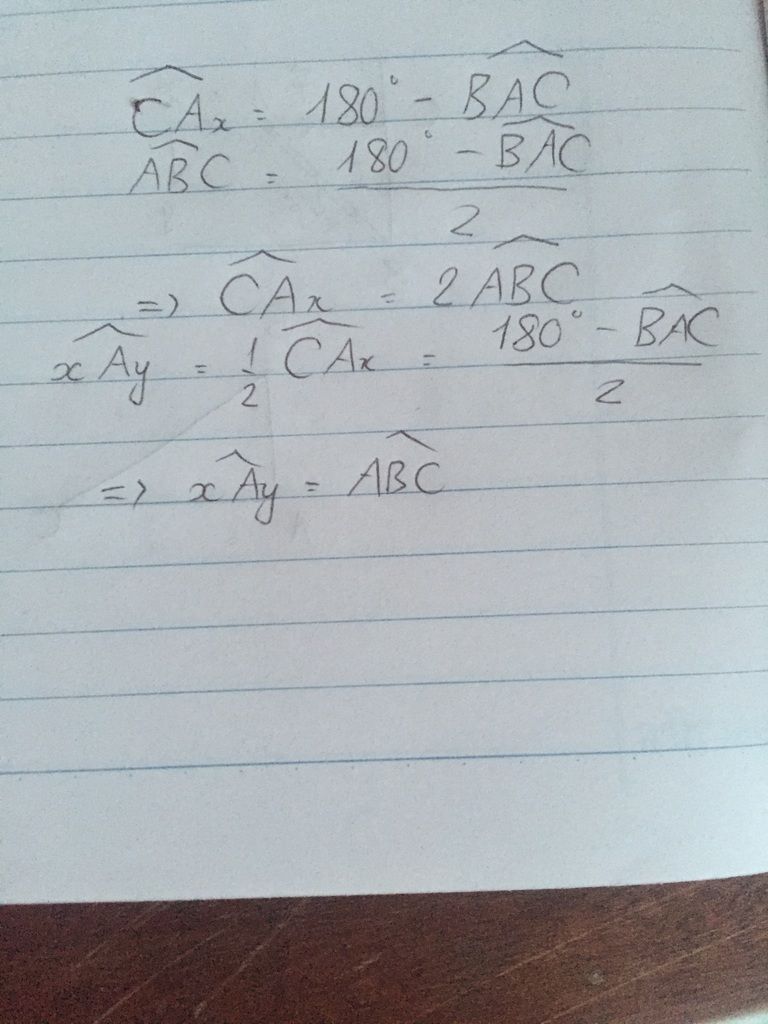 \widehat{CAx} = 180° - \widehat{BAC}
\widehat{ABC} = \frac{180° - \widehat{BAC}}{2}
=> \widehat{CAx} = 2\widehat{ABC}
\widehat{xAy} = \frac{1}{2}\widehat{CAx} = \frac{180° - \widehat{BAC}}{2}
=> \widehat{xAy} = \widehat{ABC}